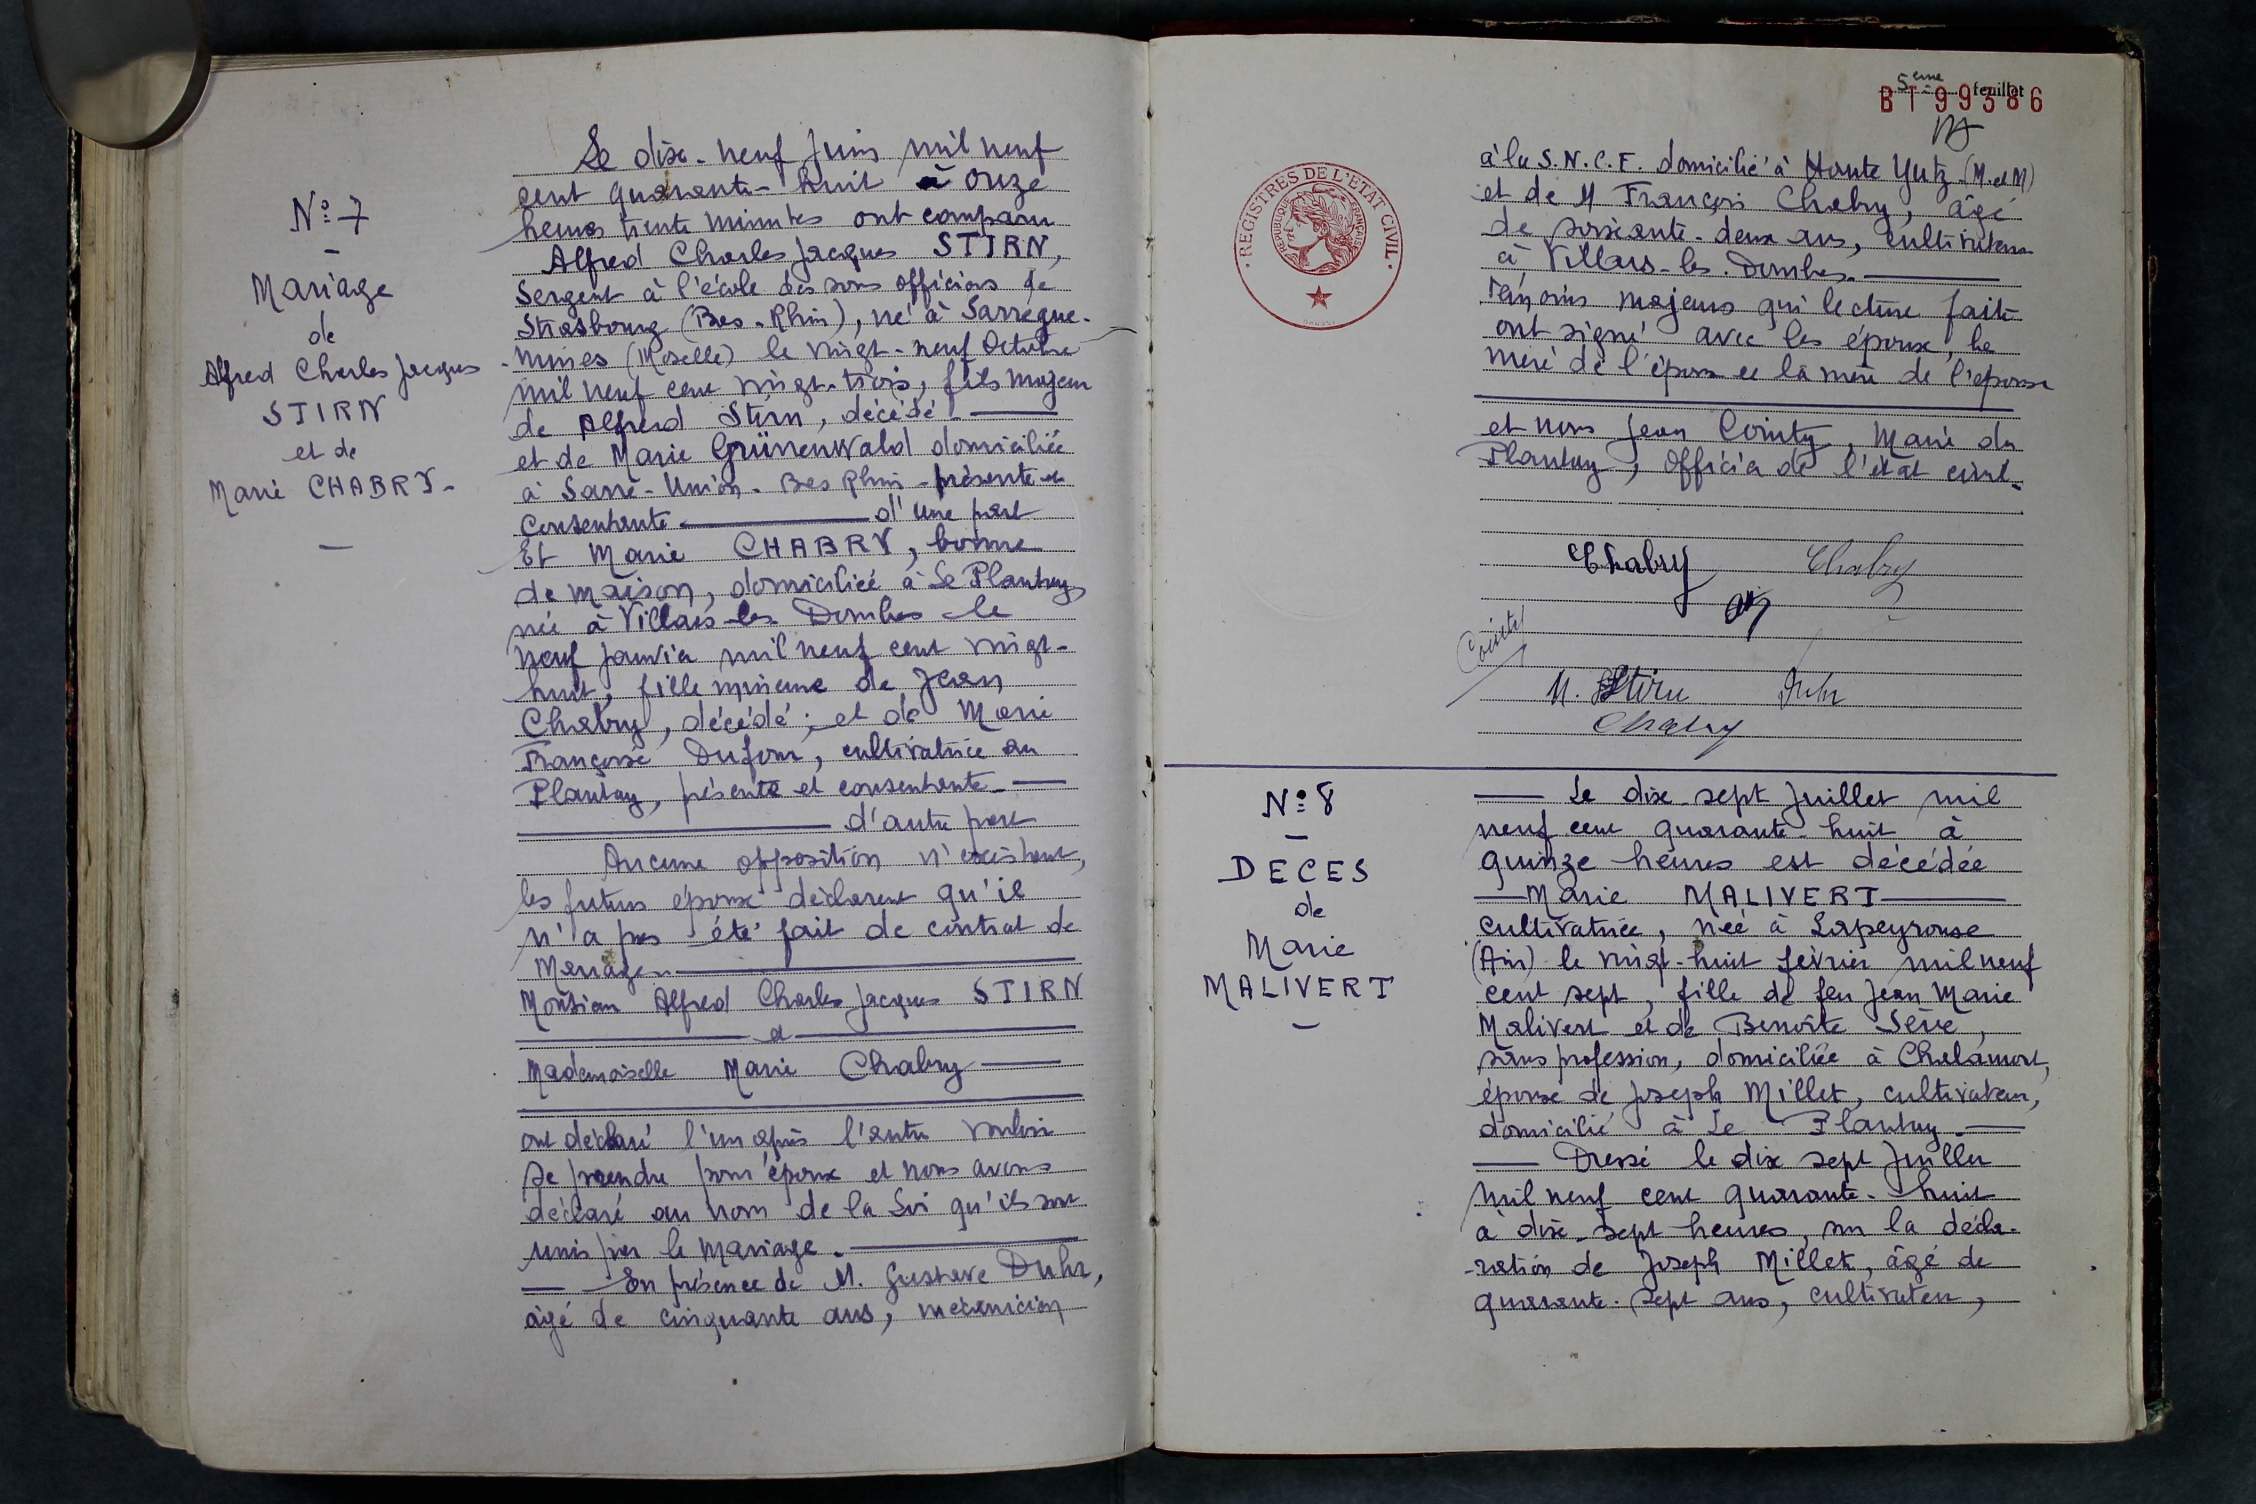 N° 7
Mariage
de
Alfred Charles Jacques
STIRN
et de
Marie CHABRY
Le dix-neuf Juin mil neuf
cent quarante-huit à onze
heures trente minutes ont comparu
Alfred Charles Jacques STIRN,
Sergent à l'école des sous officiers de
Strasbourg (Bas-Rhin), né à Sarregue-
-mines (Moselle) le vingt-neuf Octobre
mil neuf cent vingt-trois, fils majeur
de Alfred Stirn, décédé
et de Marie Grünenwald domiciliée
à Sarre-Union - Bas Rhin - présente et
consentante d'une part
Et Marie CHABRY, bonne
de maison, domiciliée à Le Plantay
née à Villars-les-Dombes le
neuf janvier mil neuf cent vingt-
huit, fille mineure de Jean
Chabry, décédé; et de Marie
Françoise Dufour, cultivatrice au
Plantay, présente et consentante
d'autre part
Aucune opposition n'existant,
les futurs époux déclarent qu'il
n'a pas été fait de contrat de
Mariage.
Monsieur Alfred Charles Jacques STIRN
et
Mademoiselle Marie Chabry
ont déclaré l'un après l'autre vouloir
se prendre pour époux et nous avons
déclaré au nom de la Loi qu'ils sont
unis par le mariage.
En présence de M. Gustave Duhr,
âgé de cinquante ans, mécanicien
5ème feuillet
BT 99386
REGISTRES DE L'ETAT CIVIL
REPUBLIQUE FRANÇAISE
à la S.N.C.F. domicilié à Haute Yutz (M. et M)
et de M François Chabry, âgé
de soixante-deux ans, cultivateur
à Villars-les-Dombes.
témoins majeurs qui lecture faite
ont signé avec les époux, la
mère de l'époux et la mère de l'épouse
et nous Jean Cointy, Maire du
Plantay, Officier de l'état civil.
Chabry Chabry
Cointy
M. Stirn Duhr
Chabry
N° 8
DECES
de
Marie
MALIVERT
Le dix-sept Juillet mil
neuf cent quarante-huit à
quinze heures est décédée
Marie MALIVERT
cultivatrice, née à Lapeyrouse
(Ain) le vingt-huit février mil neuf
cent sept, fille de feu Jean Marie
Malivert et de Benoîte Sève,
sans profession, domiciliée à Chalamont,
épouse de Joseph Millet, cultivateur,
domicilié à Le Plantay.
Dressé le dix sept Juillet
mil neuf cent quarante-huit
à dix-sept heures, sur la décla-
-ration de Joseph Millet, âgé de
quarante-sept ans, cultivateur,